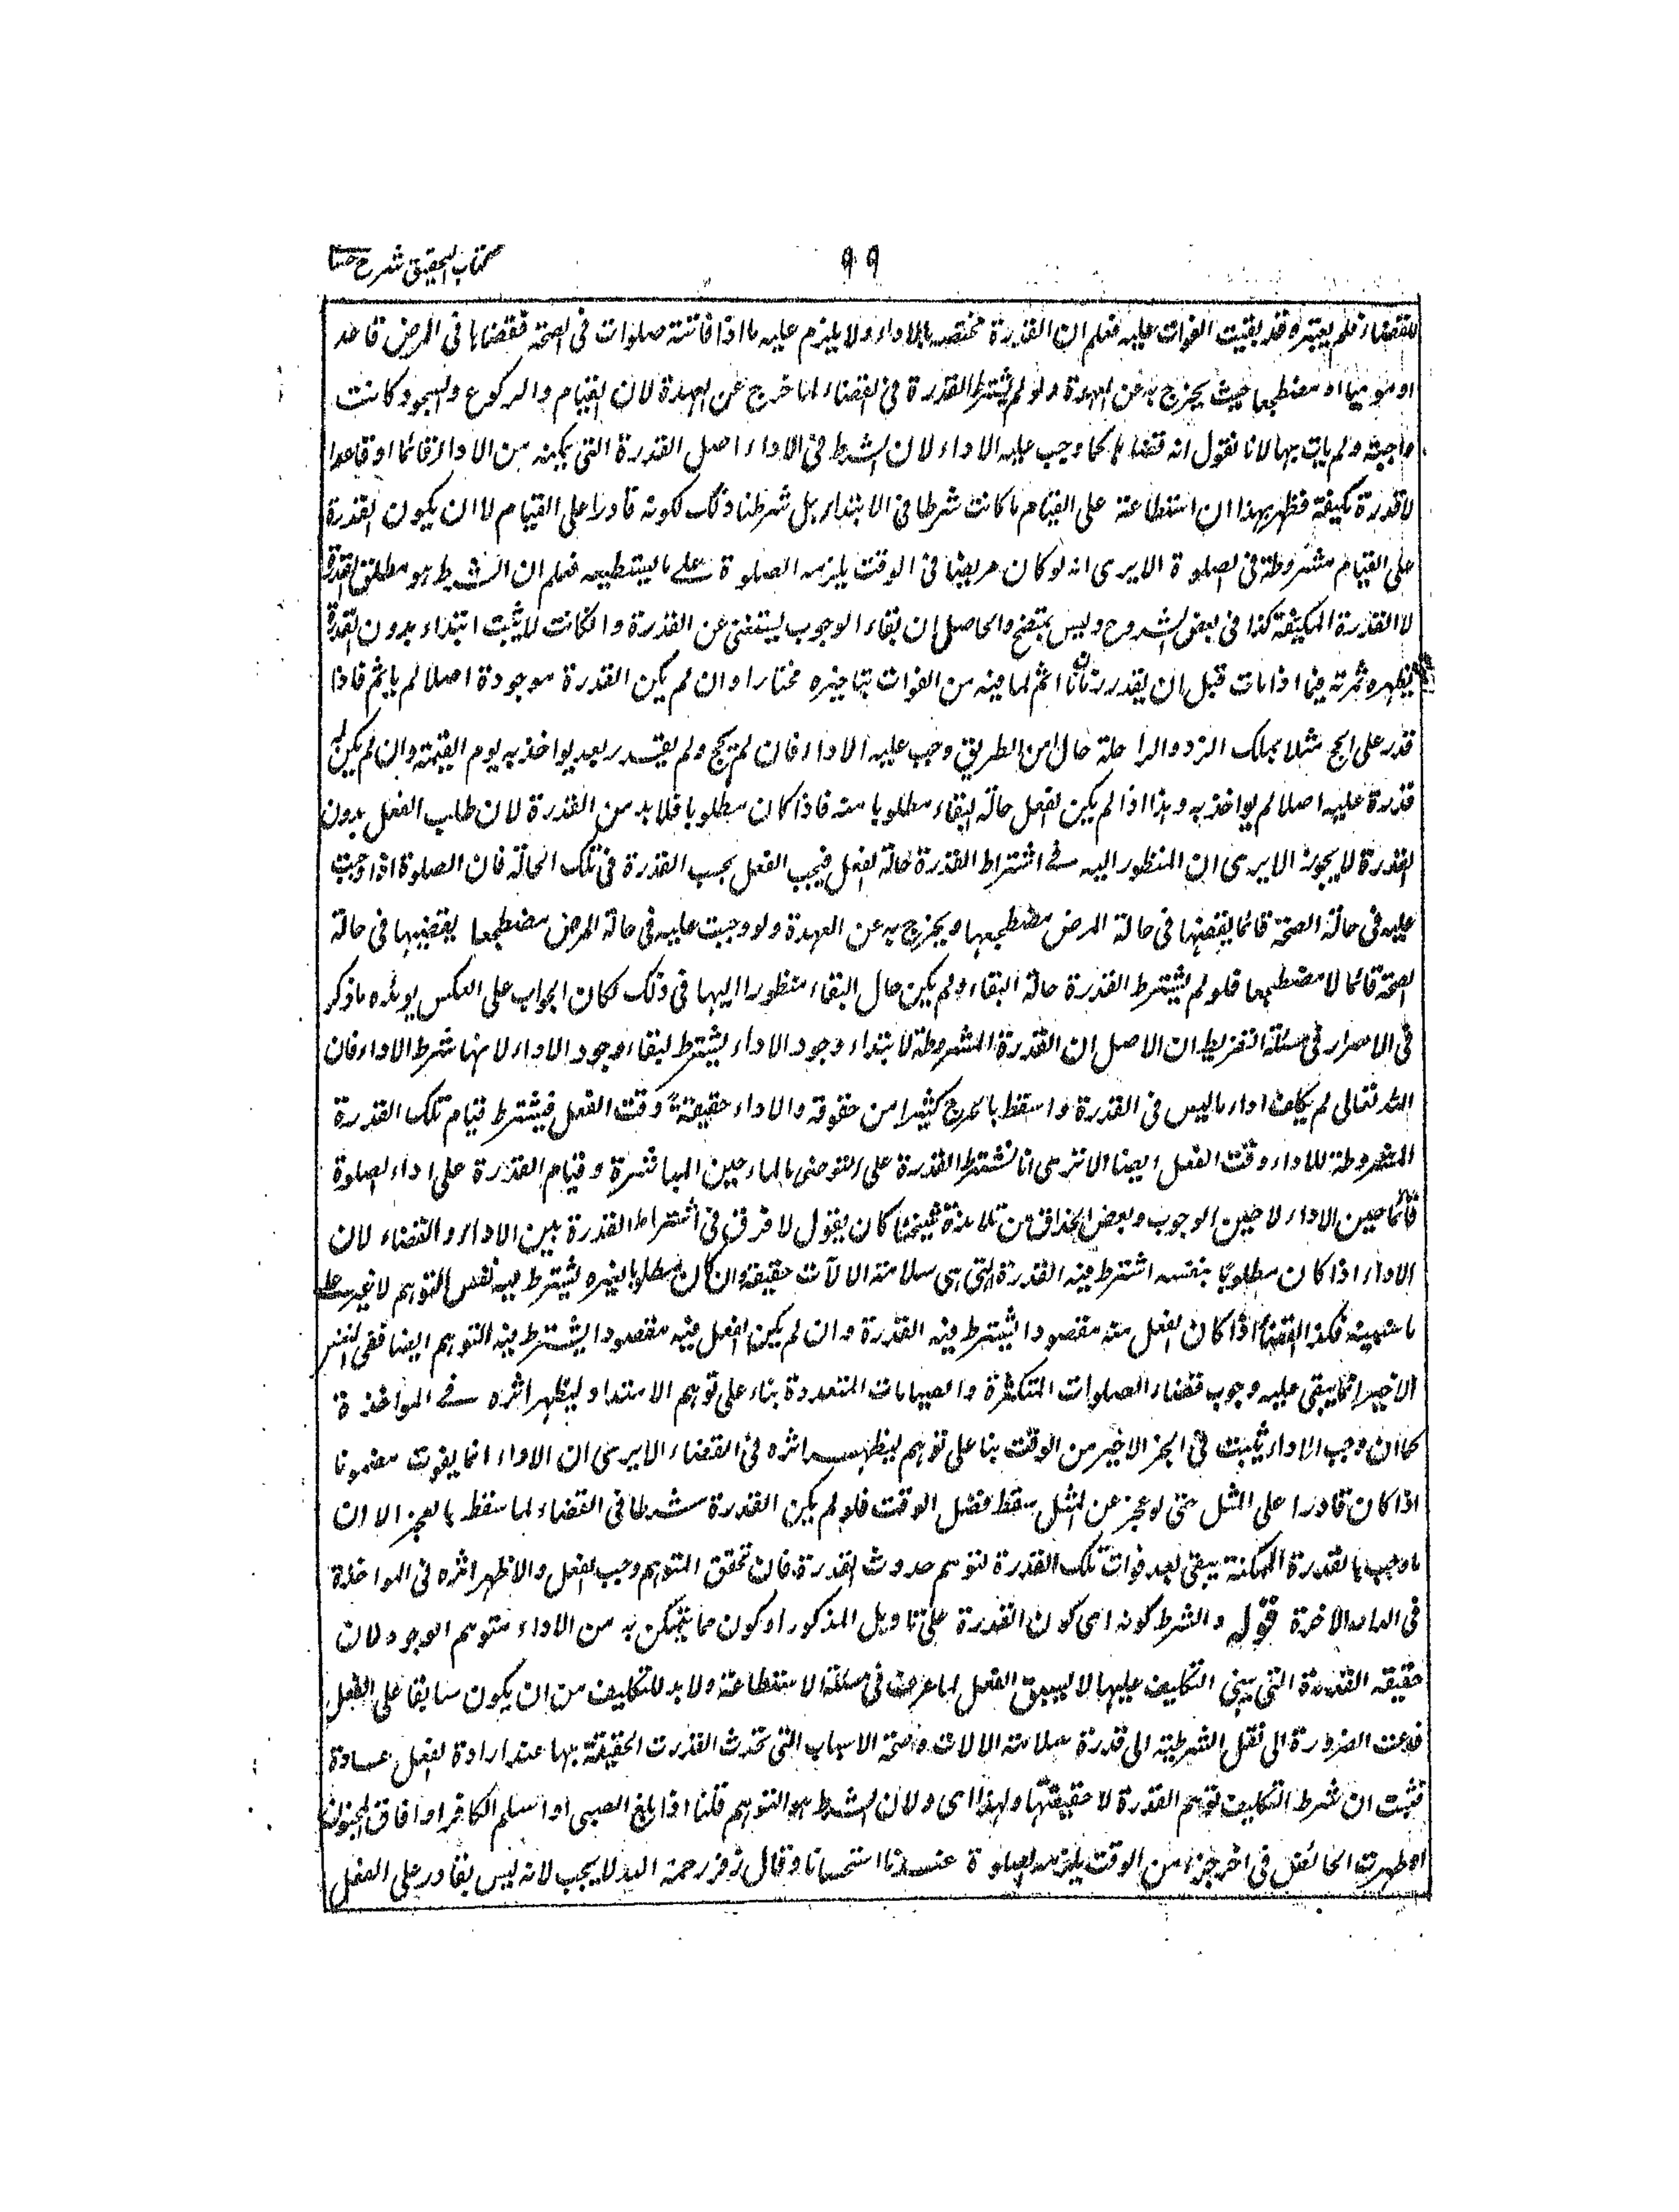 كتاب التحقيق شرح حسا
٩٩
للقضاء فلم يعتبره قد بقيت الفوات عليه فعلم ان القدرة مختصه بالاداء ولا يلزم عليه ما اذا فاتته صلوات في الصحة فقضاها في المرض قاعد
او موميا او مضطجعا حيث يخرج به عن العهدة ولو لم يشترط القدرة في القضاء لما خرج عن العهدة لان القيام والركوع والسجود كانت
واجبته ولم يات بها لانا نقول انه قضاها كما وجب عليه الاداء لان الشرط في الاداء اصل القدرة التي يمكنه من الاداء قائما او قاعدا
لا قدرة مكيفة فظهر بهذا ان استطاعته على القيام ما كانت شرطا في الابتداء بل شرطنا ذلك لكونه قادرا على القيام لا ان يكون القدرة
على القيام مشروطة في الصلوة الا يرى انه لو كان مريضا في الوقت يلزمه الصلوة على ما يستطيعه فعلم ان الشرط هو مطلق القدرة
لا القدرة المكيفة كذا في بعض الشروح وليس بمتضح والحاصل ان بقاء الوجوب يستغنى عن القدرة وانكانت للايثبت ابتداء بدون القدرة
يظهره ثمرته فيما اذا مات قبل ان يقدر زمانا اثم لما فيه من الفوات بتاخيره مختارا وان لم يكن القدرة موجودة اصلا لم ياثم فاذا
قدر على الحج مثلا بملك الزاد والراحلة حال امن الطريق وجب عليه الاداء فان لم يحج ولم يقتدر بعد يواخذ به يوم القيمة وان لم يكن له
قدرة عليه اصلا لم يواخذ به وهذا اذا لم يكن الفعل حالة البقاء مطلوبا منه فاذا كان مطلوبا فلا بد من القدرة لان طلب الفعل بدون
القدرة لا يجوز الا يرى ان المنظور اليه في اشتراط القدرة حالة الفعل فيجب الفعل بحسب القدرة في تلك الحالة فان الصلوة اذا وجبت
عليه في حالة الصحة قائما يقضيها في حالة المرض مضطجعها ويخرج به عن العهدة ولو وجبت عليه في حالة المرض مضطجعا يقضيها في حالة
الصحة قائما لا مضطجعا فلو لم يشترط القدرة حالة البقاء ولم يكن حال البقاء منظورا اليها في ذلك لكان الجواب على العكس يؤيده ما ذكر
في الاسرار في مسئلة التفريط ان الاصل ان القدرة المشروطة لابتداء وجود الاداء يشترط لبقاء وجود الاداء لانها شرط الاداء فان
الله تعالى لم يكلف اداء ما ليس في القدرة واسقط بالحرج كثيرا من حقوقه والاداء حقيقة وقت الفعل فيشترط قيام تلك القدرة
المشروطة للاداء وقت الفعل ايضا الا ترى انا نشترط القدرة على التوضي بالماء حين المباشرة وقيام القدرة على اداء الصلوة
قائما حين الاداء لا حين الوجوب وبعض الحذاق من تلامذة شيخنا كان يقول لا فرق في اشتراط القدرة بين الاداء والقضاء لان
الاداء اذا كان مطلوبا بنفسه اشترط فيه القدرة التي هي سلامته الالآت حقيقة وان كان مطلوبا لغيره يشترط فيه نفس التوهم لا غير على
ما سنبينه فكذا القضاء اذا كان الفعل منه مقصودا يشترط فيه القدرة وان لم يكن الفعل فيه مقصودا يشترط فيه التوهم ايضا ففى النفس
الاخير انما يبقى عليه وجوب قضاء الصلوات المتكثرة والصيامات المتعددة بناء على توهم الامتداد ليظهر اثره في المواخذة
كما ان وجوب الاداء يثبت في الجزء الاخير من الوقت بنا على توهم ليظهر اثره في القضاء الا يرى ان الاداء انما يفوت مضمونا
اذا كان قادرا على المثل حتى لو عجز عن المثل سقط فضل الوقت فلو لم يكن القدرة شرطا في القضاء لما سقط بالعجز الا ان
ما وجب بالقدرة الممكنة يبقى بعد فوات تلك القدرة لتوهم حدوث القدرة فان تحقق التوهم وجب الفعل والا ظهر اثره في المواخذة
في الدار الاخرة قوله والشرط كونه اى كون القدرة على تاويل المذكور او كون ما يتمكن به من الاداء متوهم الوجود لان
حقيقه القدرة التي يبنى التكليف عليها لا يسبق الفعل لما عرف في مسئلة الاستطاعة ولا بد للتكليف من ان يكون سابقا على الفعل
فدعت الضرورة الى نقل الشرطية الى قدرة سلامته الالات وصحة الاسباب التي تحدث القدرت الحقيقة بها عند ارادة الفعل عادة
فثبت ان شرط التكليف توهم القدرة لا حقيقتها ولهذا اى ولان الشرط هو التوهم قلنا اذا بلغ الصبى او اسلم الكافر او افاق المجنون
او طهرت الحائض في اخر جزء من الوقت يلزمه الصلوة عندنا استحسانا وقال زفر رحمة الله لا يجب لانه ليس بقادر على الفعل